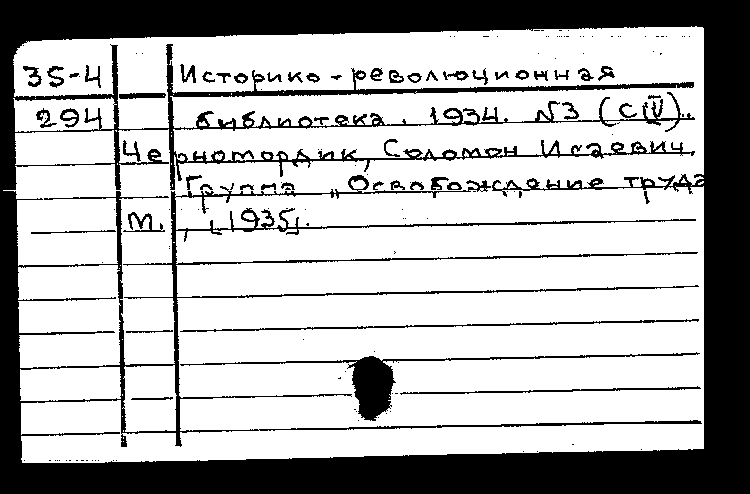 35-4 Историко-революционная
294 библиотека. 1934. №3 (СIV).
Черномордик, Соломон Исаевич.
Группа „Освобождение труда
М., [1935].